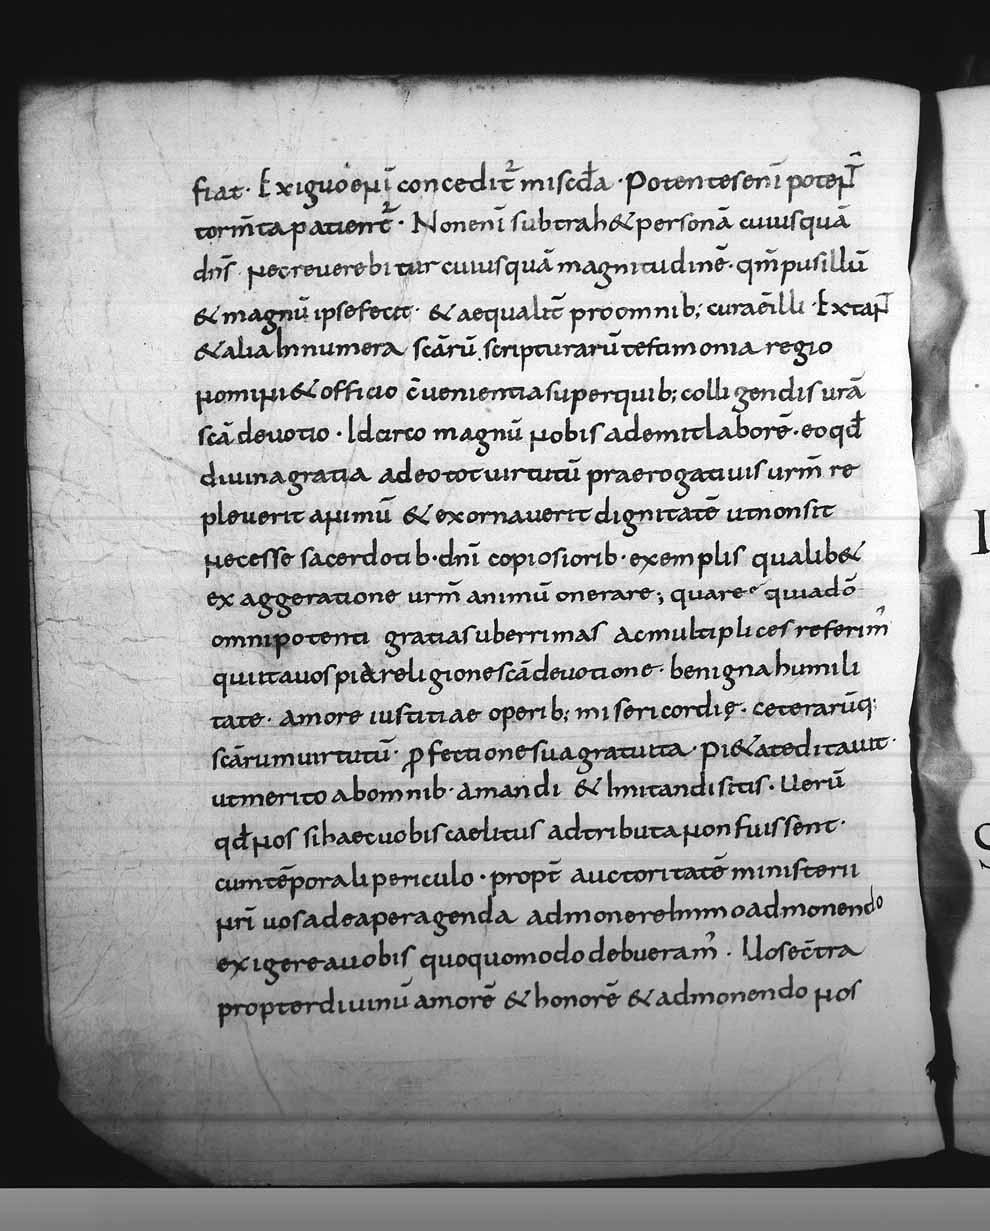 fiat · Exiguo eni conceditr̄ miscd̄a · Potentes enī potent̄
tormta patientr̄ · Non enī subtrah& personā cuiusquā
dn̄s · nec reverebitur cuiusquā magnitudinē · qm̄ pusillū
& magnū ipse fecit · & aequalit̄ pro omnib; cura ē illi · Exta nr̄
& alia Innumera scārū scripturarū testimonia regio
nomini & officio c̄venientia super quib; colligendis urā
scā devotio · Idcirco magnū nobis ademit laborē · eo qd̄
divina gratia adeo tot virtutū praerogativis urm̄ re
pleverit animū & exornaverit dignitatē ut non sit
necesse sacerdotib · dnī copiosiorib · exemplis qualib&
ex aggeratione urm̄ animū onerare; quare quia dō
omnipotenti gratias uberrimas ac multiplices referim'
qui ita vos pi& religione scā devotione · benigna humili
tate · amore iustitiae operib; misericordię · ceterarūq;
scārum virtutū · ꝓfectione sua gratuita · pi&ate ditavit ·
ut merito ab omnib · amandi & Imitandi sitis · Uerū
qd̄ nos si haec vobis caelitus adtributa non fuissent ·
cum tēporali periculo · propt̄ auctoritatē ministerii
nrī vos ad ea peragenda admonere Immo admonendo
exigere a vobis quoquo modo debueram' · Uos ec̄tra
propter divinū amorē & honorē & admonendo nos
I
S